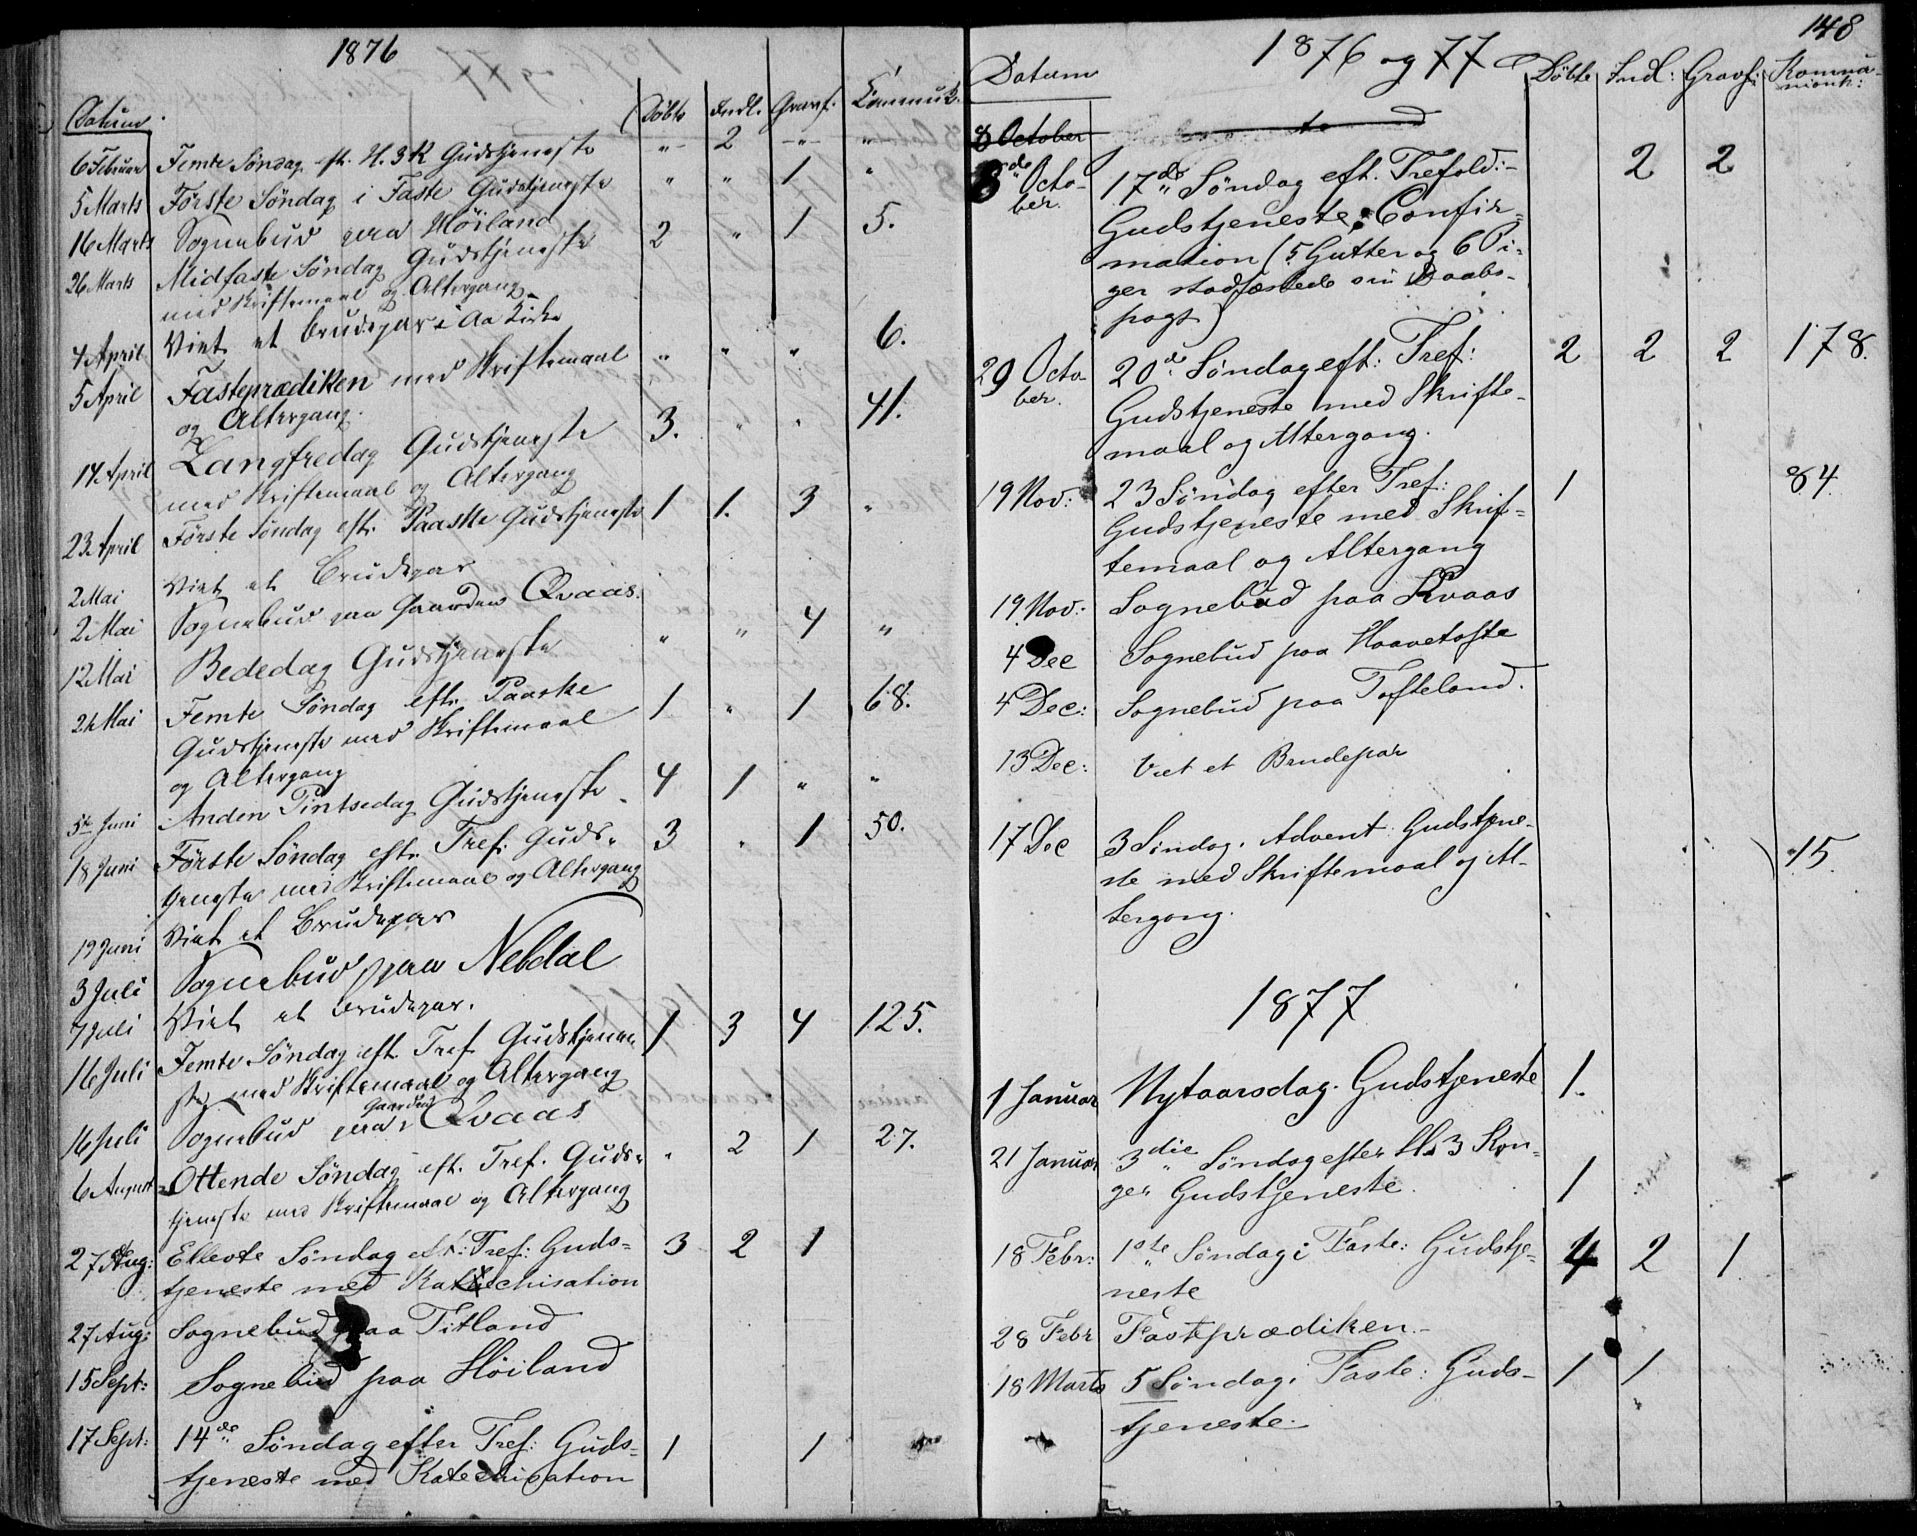 1876
Datum. Döbte Indl. Gravf. Commuk.
6 Februar Femte Søndag eft. H. 3 K Gudstjeneste " 2 " "
5 Marts Første Søndag i Faste Gudstjeneste " " 1 "
16 Marts Sognebud paa Höiland
26 Marts Midfaste Søndag Gudstjeneste 2 " 1 5.
med Skriftemaal og Altergang
4 April Viet et brudepar i Aa Kirke
5 April Fasteprædiken med Skriftemaal " " " 6.
og Altergang.
14 April Langfredag Gudstjeneste 3. " " 41.
med Skriftemaal og Altergang
23 April Første Søndag eft. Paaske Gudstjeneste 1 1. 3 "
2 Mai Viet et Brudepar
2 Mai Sognebud paa Gaarden Qvaas.
12 Mai Bededag Gudstjeneste " " 4 "
21 Mai Femte Søndag eft. Paaske 1 " 1 68.
Gudstjeneste med Skriftemaal
og Altergang
5te Juni Anden Pintsedag Gudstjeneste. 4 1 " "
18 Juni Første Søndag eft. Tref. Guds- 3 " 1 50.
tjeneste med Skriftemaal og Altergang
19 Juni Viet et Brudepar
3 Juli Sognebud paa Nebdal
7 Juli Viet et brudepar.
16 Juli Femte Søndag eft. Tref. Gudstjene- 1 3 4 125.
ste med Skriftemaal og Altergang
16 Juli Sognebud paa Gaarden Qvaas
6 August Ottende Søndag eft. Tref. Guds- " 2 1 27.
tjeneste med Skriftemaal og Altergang
27 Aug: Ellevte Søndag eft: Tref: Guds= 3 2 1
tjeneste med Katechisation
27 Aug: Sognebud paa Titland
15 Sept: Sognebud paa Höiland
17 Sept: 14de Søndag efter Tref: Guds= 1 1
tjeneste med Katechisation
148
Datum 1876 og 77 Döbte Indl: Gravf: Kommu-
nionk:
8 October
8de Octo- 17de Søndag eft. Trefold:- 2 2
ber. Gudstjeneste; Confir=
mation (5 Gutter og 6 Pi-
ger stadfæstede sin Daabs-
pagt)
29 Octo- 20de Søndag eft: Tref: 2 2 2 178.
ber. Gudstjeneste med Skrifte-
maal og Altergang.
19 Nov: 23 Søndag efter Tref: 1 84.
Gudstjeneste med Skrif=
temaal og Altergang
19 Nov: Sognebud paa Kvaas
4 Dec Sognebud paa Haavetofte
4 Dec: Sognebud paa Tofteland.
13 Dec: Viet et Brudepar
17 Dec 3 Søndag i Advent: Gudstjene- 15.
ste med Skriftemaal og Al-
tergang.
1877
1 Januar Nytaarsdag. Gudstjeneste 1.
21 Januar 3die Søndag efter H. 3 Kon-
ger Gudstjeneste. 1
18 Febr: 1ste Søndag i Faste: Gudstje- 4 2 1
neste
28 Febr Fasteprædiken.-
18 Marts 5 Søndag i Faste: Guds- 1 1
tjeneste.-